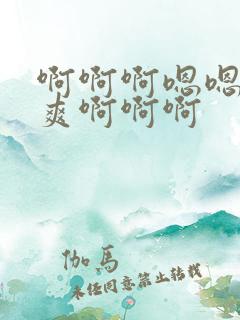 啊啊啊嗯嗯
爽啊啊啊
伽馬
未经同意禁止转载